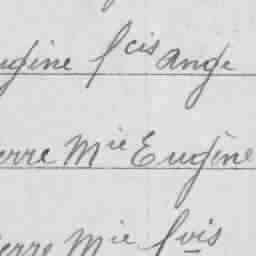 ugène fcis Ange
erre Mie Eugène
ierre Mie fois